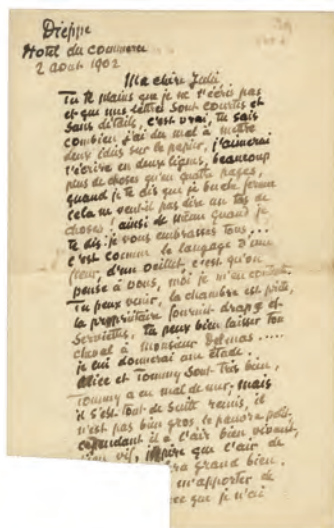 Dieppe
Hotel du commerce
2 aout 1902
Ma chère Julie
Tu te plains que je ne t'écris pas
et que mes lettres sont courtes et
sans détails, c'est vrai, tu sais
combien j'ai du mal à mettre
deux idées sur le papier, j'aimerai
t'écrire en deux lignes, beaucoup
plus de choses qu'en quatre pages,
quand je te dis que je buche ferme
cela ne veut-il pas dire un tas de
choses! ainsi de même quand je
te dis: je vous embrasses tous...
c'est comme le langage d'une
fleur, d'un oeillet c'est qu'on
pense à vous, moi je m'en contente.
Tu peux venir, la chambre est prête,
la propriétaire fournit draps et
serviettes, tu peux bien laisser ton
cheval à monsieur Delmas.....
je lui donnerai une étude.
Alice et Tommy sont très bien,
Tommy a eu mal de mer, mais
il s'est tout de suite remis, il
n'est pas bien gros, le pauvre petit,
cependant il a l'air bien vivant,
bien vif, que l'air de
ra grand bien.
m'apporter de
ce que je n'ai